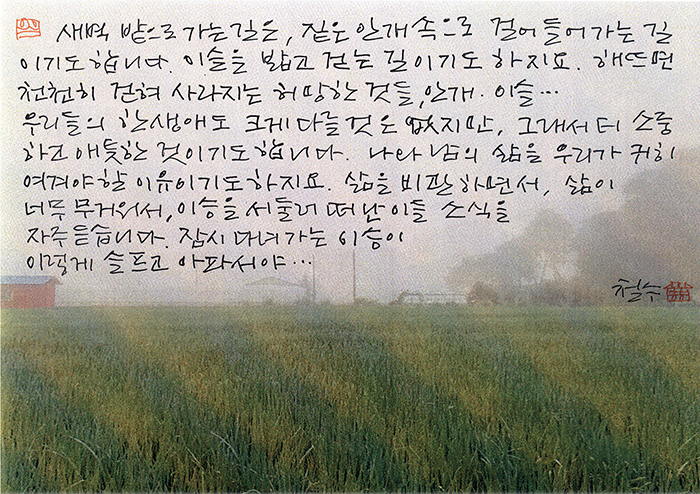 새벽 밭으로 가는 길은, 짙은 안개 속으로 걸어 들어가는 길
이기도 합니다. 이슬을 밟고 걷는 길이기도 하지요. 해 뜨면
천천히 걷혀 사라지는 허망한 것들, 안개. 이슬…
우리들의 한 생애도 크게 다를 것은 없지만, 그래서 더 소중
하고 애틋한 것이기도 합니다. 나와 남의 삶을 우리가 귀히
여겨야 할 이유이기도 하지요. 삶을 비판하면서, 삶이
너무 무거워서, 이승을 서둘러 떠난 이들 소식을
자주 듣습니다. 잠시 다녀가는 이승이
이렇게 슬프고 아파서야…
철수